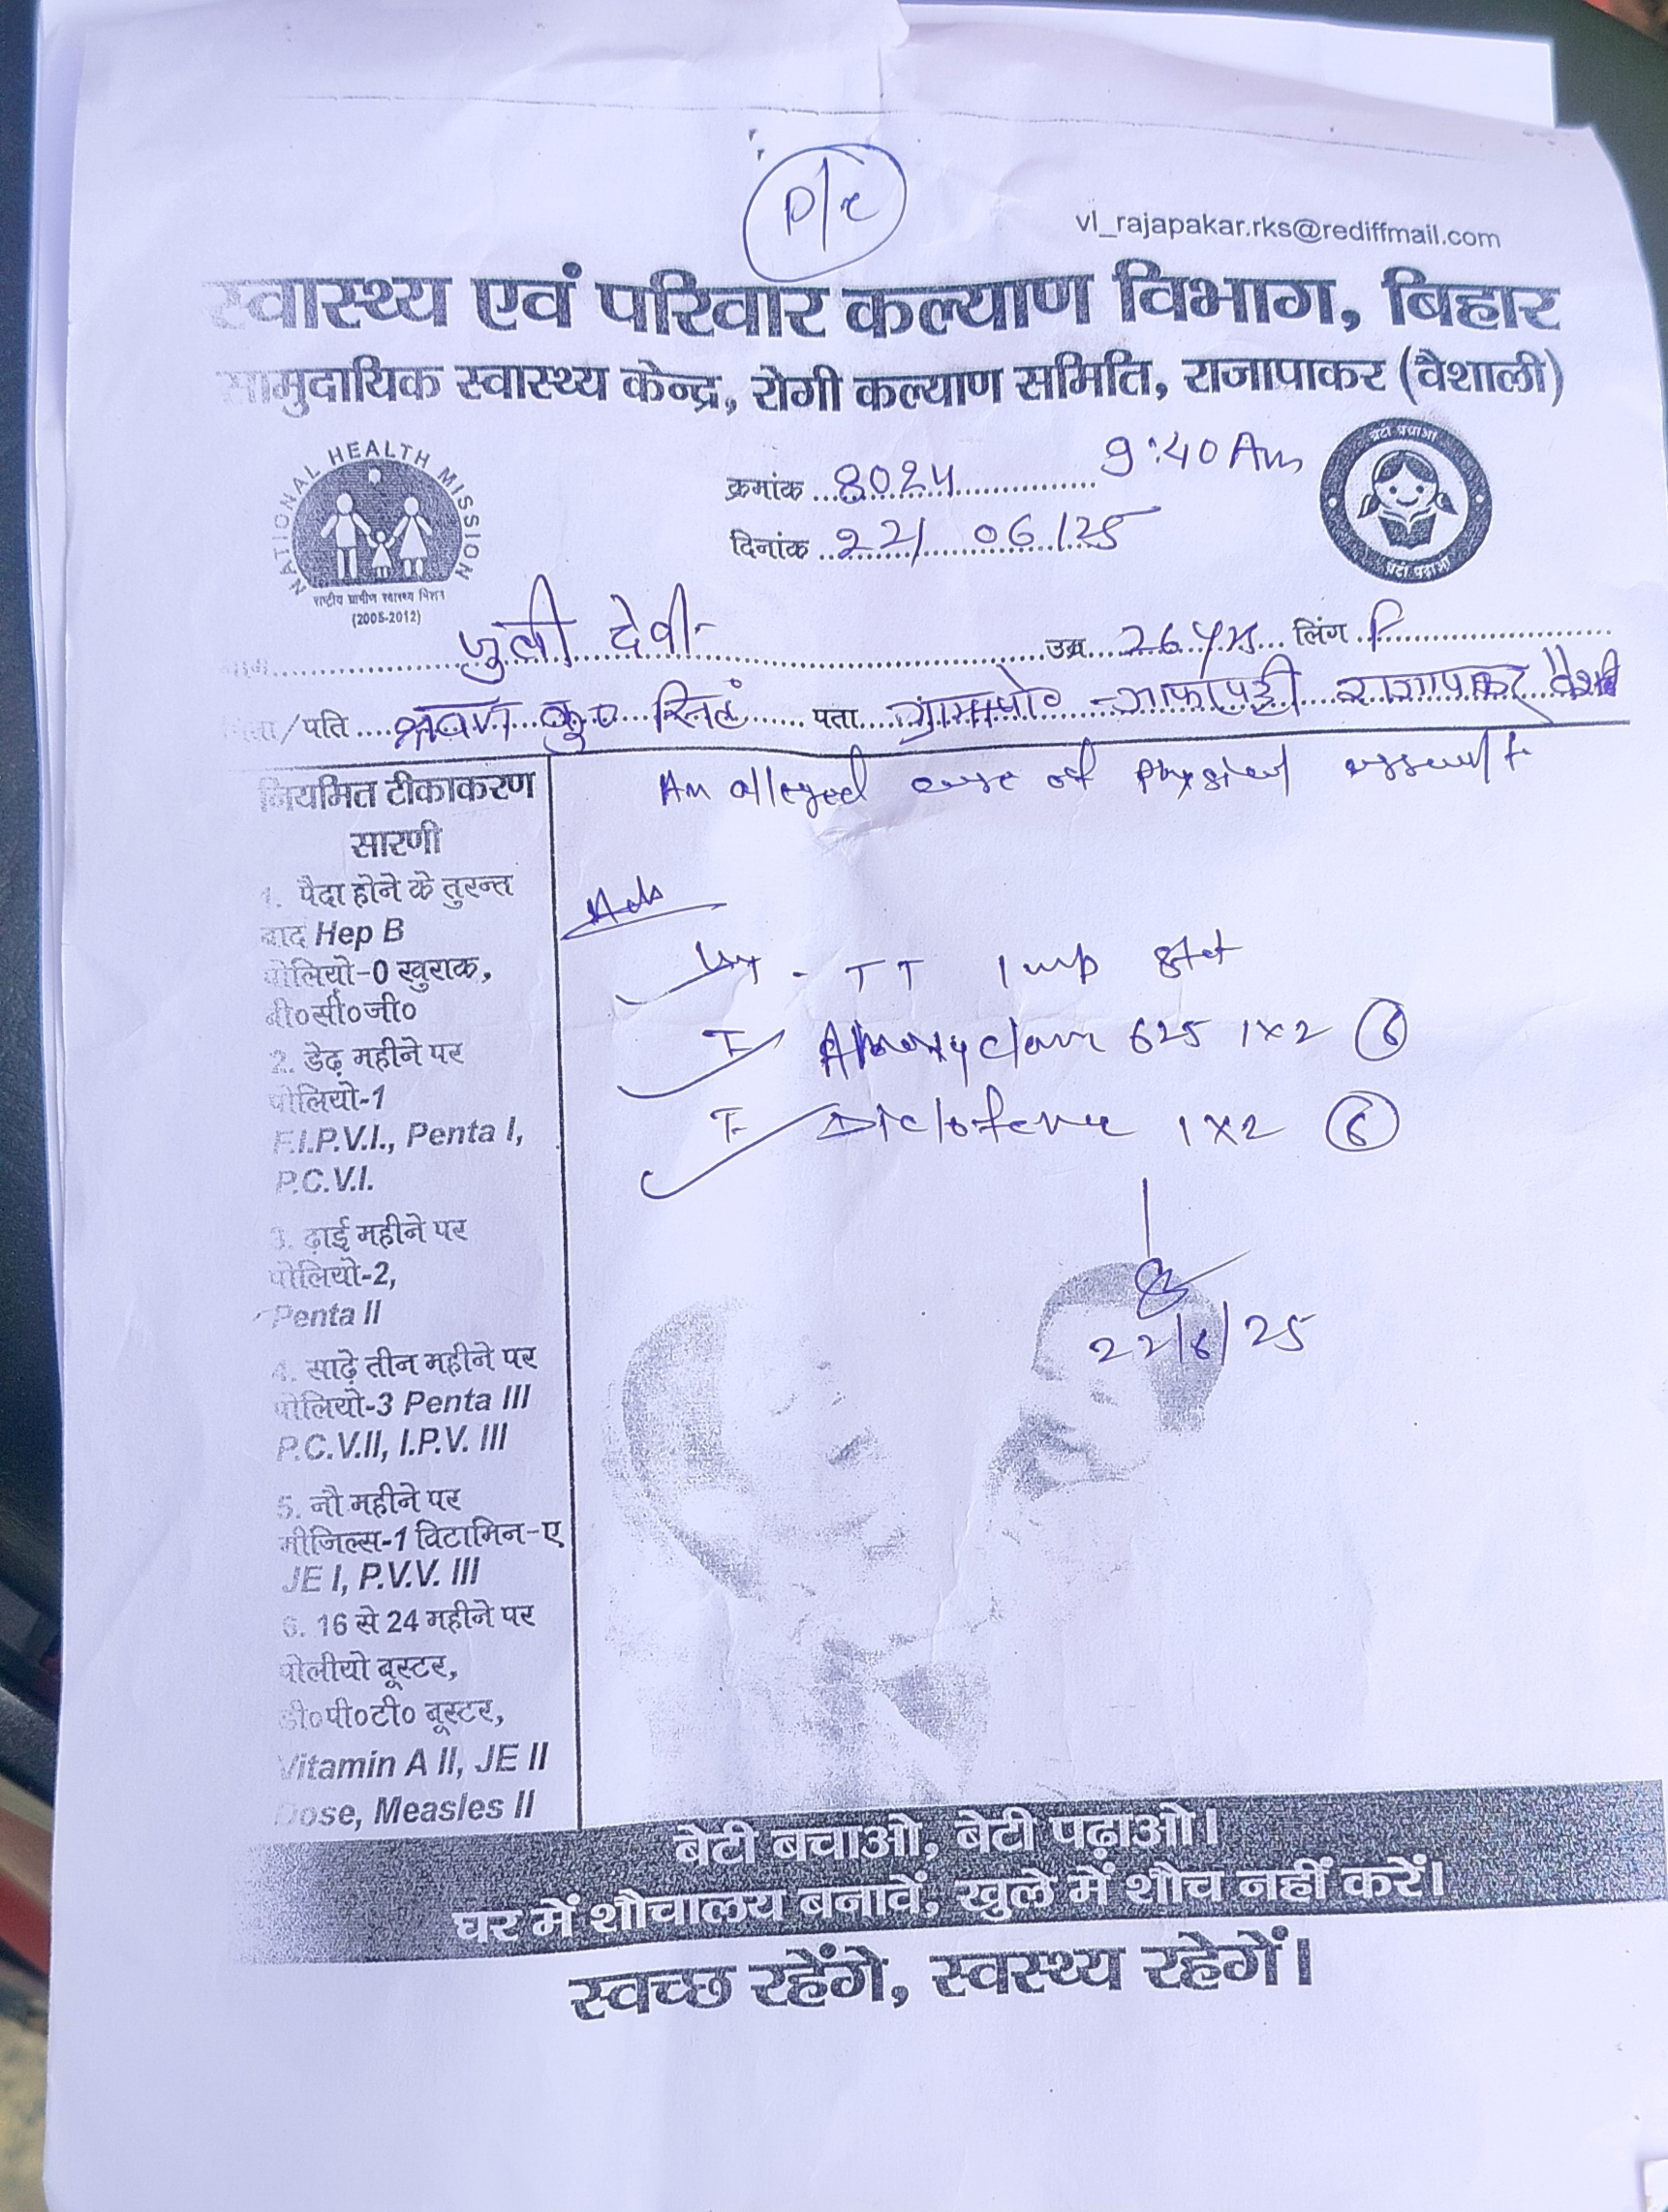 P/c
vl_rajapakar.rks@rediffmail.com
स्वास्थ्य एवं परिवार कल्याण विभाग, बिहार
सामुदायिक स्वास्थ्य केन्द्र, रोगी कल्याण समिति, राजापाकर (वैशाली)
NATIONAL HEALTH MISSION
राष्ट्रीय ग्रामीण स्वास्थ्य मिशन
(2005-2012)
क्रमांक ...8024... 9:40 Am
दिनांक ...22/06/25
बेटी बचाओ
बेटी पढ़ाओ
नाम... जुली देवी उम्र... 26 yrs... लिंग. F
पिता/पति .... श्रवण कु० सिंह ..... पता... राजापाकर वैशाली
An alleged case of physical assault
Adv
Inj - TT 1 amp stat
T. Amoxyclam 625 1x2 (6)
T. Diclofenac 1x2 (6)
22/6/25
नियमित टीकाकरण
सारणी
1. पैदा होने के तुरन्त
बाद Hep B
पोलियो-0 खुराक,
बी०सी०जी०
2. डेढ़ महीने पर
पोलियो-1
F.I.P.V.I., Penta I,
P.C.V.I.
3. ढ़ाई महीने पर
पोलियो-2,
Penta II
4. साढ़े तीन महीने पर
पोलियो-3 Penta III
P.C.V.II, I.P.V. III
5. नौ महीने पर
मीजिल्स-1 विटामिन-ए
JE I, P.V.V. III
6. 16 से 24 महीने पर
पोलीयो बूस्टर,
डी०पी०टी० बूस्टर,
Vitamin A II, JE II
Dose, Measles II
बेटी बचाओ, बेटी पढ़ाओ।
घर में शौचालय बनावें, खुले में शौच नहीं करें।
स्वच्छ रहेंगे, स्वस्थ्य रहेगें।